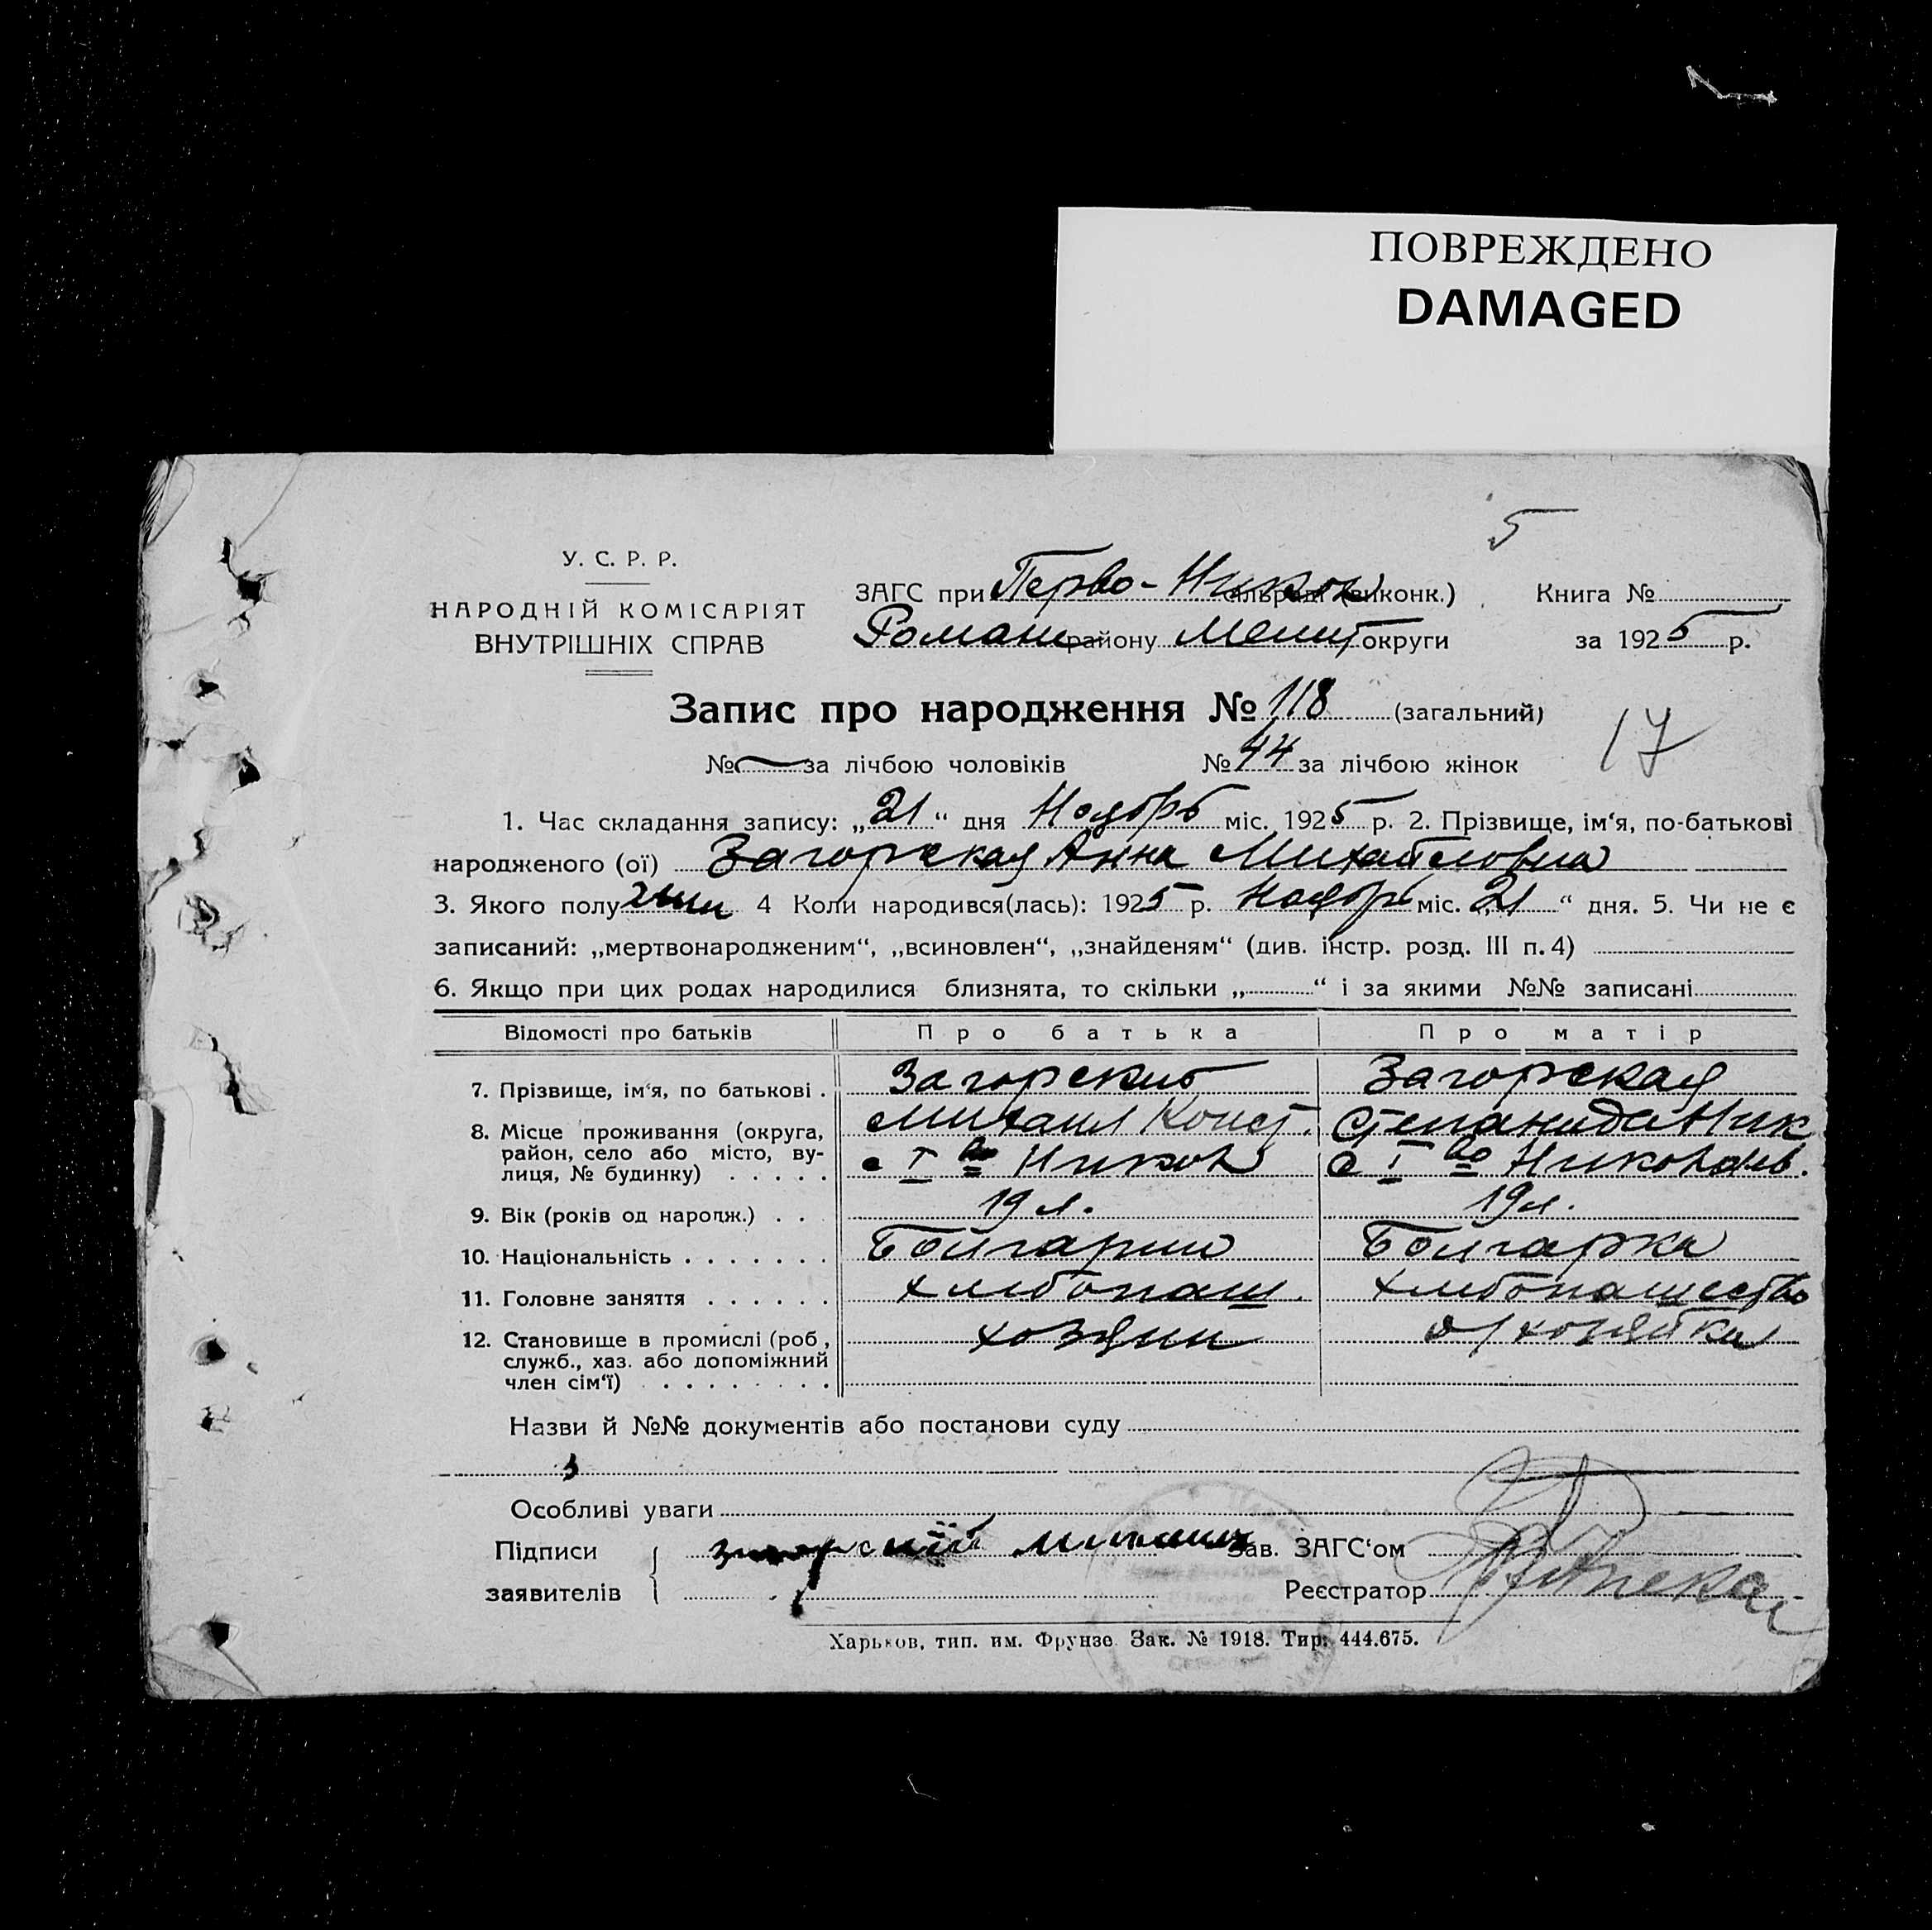 ПОВРЕЖДЕНО
DAMAGED
5
У. С. Р. Р.
НАРОДНІЙ КОМІСАРІЯТ
ВНУТРІШНІХ СПРАВ
ЗАГС при Перво-Никол сільраді (виконк.) Книга №
Роман району Мелит округи за 1925 р.
Запис про народження № 118 (загальний)
17
№ — за лічбою чоловіків № 44 за лічбою жінок
1. Час складання запису: „21“ дня Ноябрь міс. 1925 р. 2. Прізвище, ім‘я, по-батькові
народженого (ої) Загорская Анна Михайловна
3. Якого полу жен 4 Коли народився(лась): 1925 р. Ноябрь міс. „21“ дня. 5. Чи не є
записаний: „мертвонародженим“, „всиновлен“, „знайденям“ (див. інстр. розд. III п. 4)
6. Якщо при цих родах народилися близнята, то скільки „ “ і за якими №№ записані
Відомості про батьків Про батька Про матір
7. Прізвище, ім‘я, по батькові . Загорский Загорская
Михаил Конст. Степанида Ник
8. Місце проживання (округа,
район, село або місто, ву-
лиця, № будинку) . . . . . с I во Никол с I во Николаев.
9. Вік (років од народж.) . . . 19 л. 19 л.
10. Національність . . . . . . . Болгарин Болгарка
11. Головне заняття . . . . . . хлебопаш. хлебопашество
12. Становище в промислі (роб., хозяин д/хозяйка
служб., хаз. або допоміжний
член сім‘ї) . . . . . . . . .
Назви й №№ документів або постанови суду
Особливі уваги
Підписи загорскій михаил Зав. ЗАГС‘ом
заявителів Реєстратор
Харьков, тип. им. Фрунзе Зак. № 1918. Тир. 444.675.